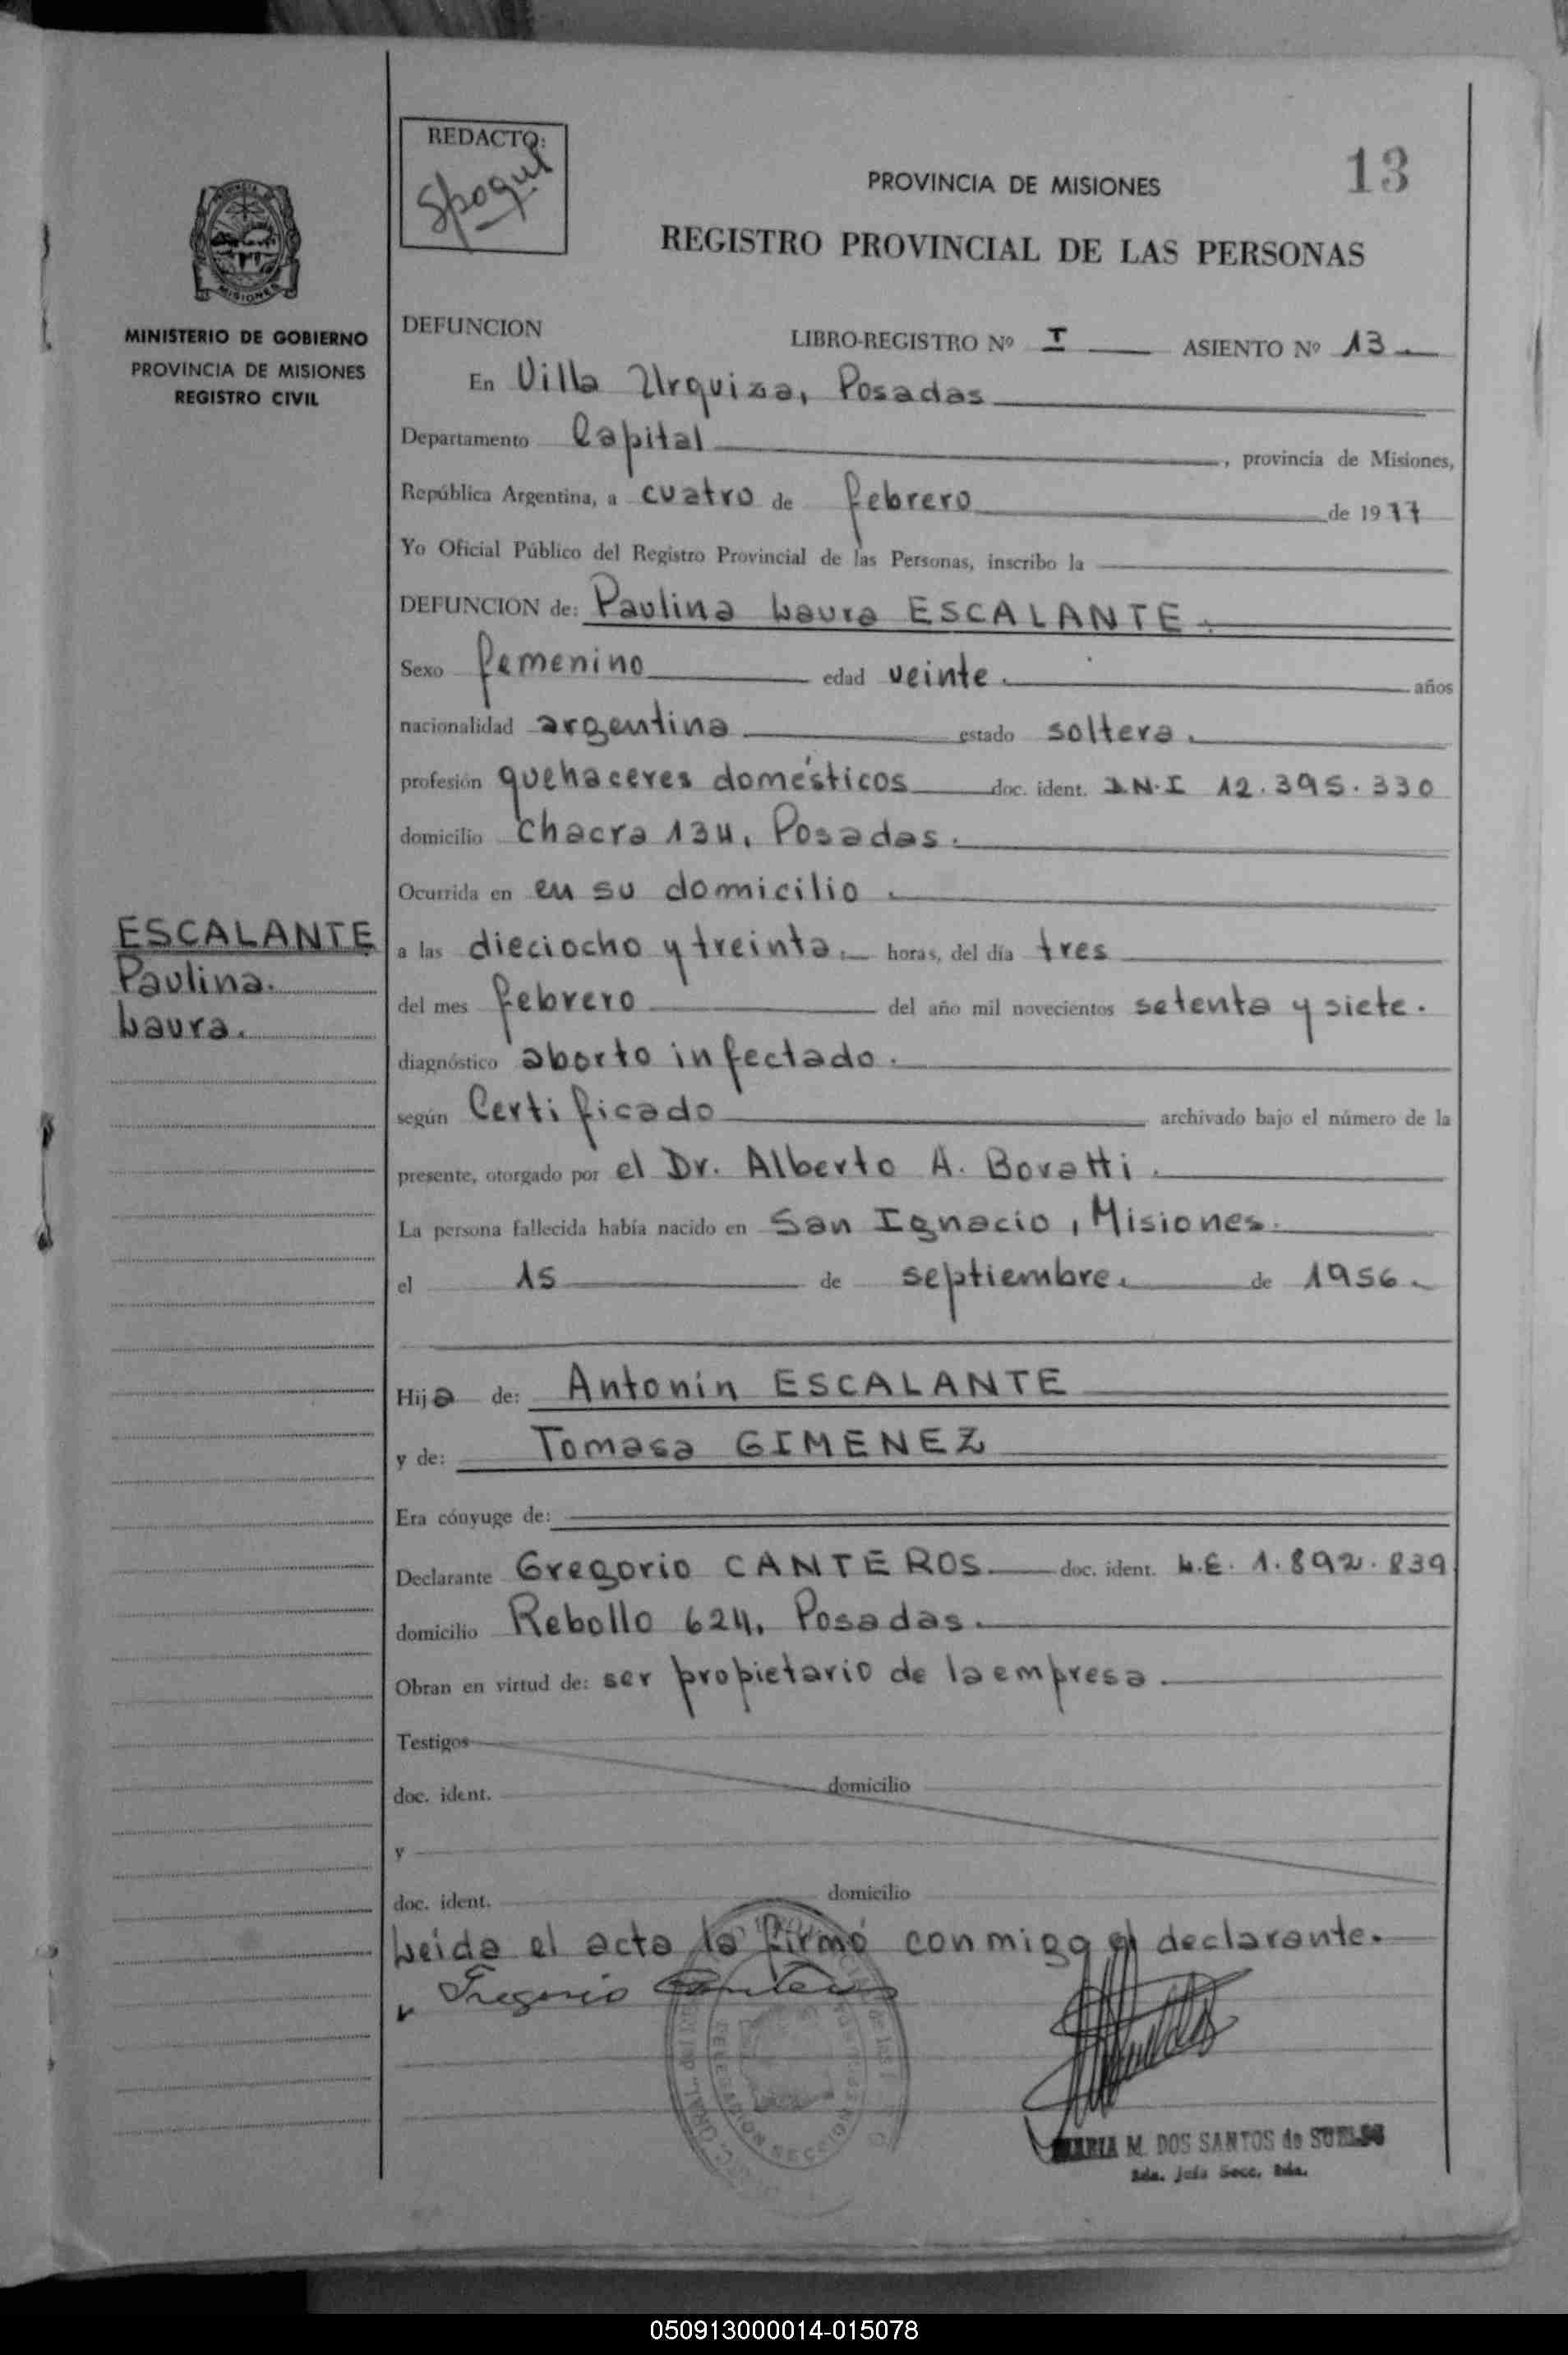 REDACTO:
13
PROVINCIA DE MISIONES
REGISTRO PROVINCIAL DE LAS PERSONAS
MISIONES
MINISTERIO DE GOBIERNO
PROVINCIA DE MISIONES
REGISTRO CIVIL
DEFUNCION LIBRO-REGISTRO Nº I ASIENTO Nº 13
En Villa Urquiza, Posadas
Departamento Capital, provincia de Misiones,
República Argentina, a cuatro de febrero de 1977
Yo Oficial Público del Registro Provincial de las Personas, inscribo la
DEFUNCION de: Paulina Laura ESCALANTE.
Sexo femenino edad veinte. años
nacionalidad argentina estado soltera.
profesión quehaceres domésticos doc. ident. D.N.I 12.395.330
domicilio Chacra 134, Posadas.
Ocurrida en en su domicilio.
ESCALANTE
Paulina.
Laura.
a las dieciocho y treinta. horas, del día tres
del mes febrero del año mil novecientos setenta y siete.
diagnóstico aborto infectado.
según Certificado archivado bajo el número de la
presente, otorgado por el Dr. Alberto A. Boratti.
La persona fallecida había nacido en San Ignacio, Misiones.
el 15 de septiembre. de 1956.
Hija de: Antonin ESCALANTE
y de: Tomasa GIMENEZ
Era cónyuge de:
Declarante Gregorio CANTEROS doc. ident. L.E. 1.892.839
domicilio Rebollo 624, Posadas.
Obran en virtud de: ser propietario de la empresa.
Testigos
doc. ident. domicilio
y
doc. ident. domicilio
Leida el acta la firmó conmigo el declarante.
Gregorio Canteros
MARIA M. DOS SANTOS de
050913000014-015078